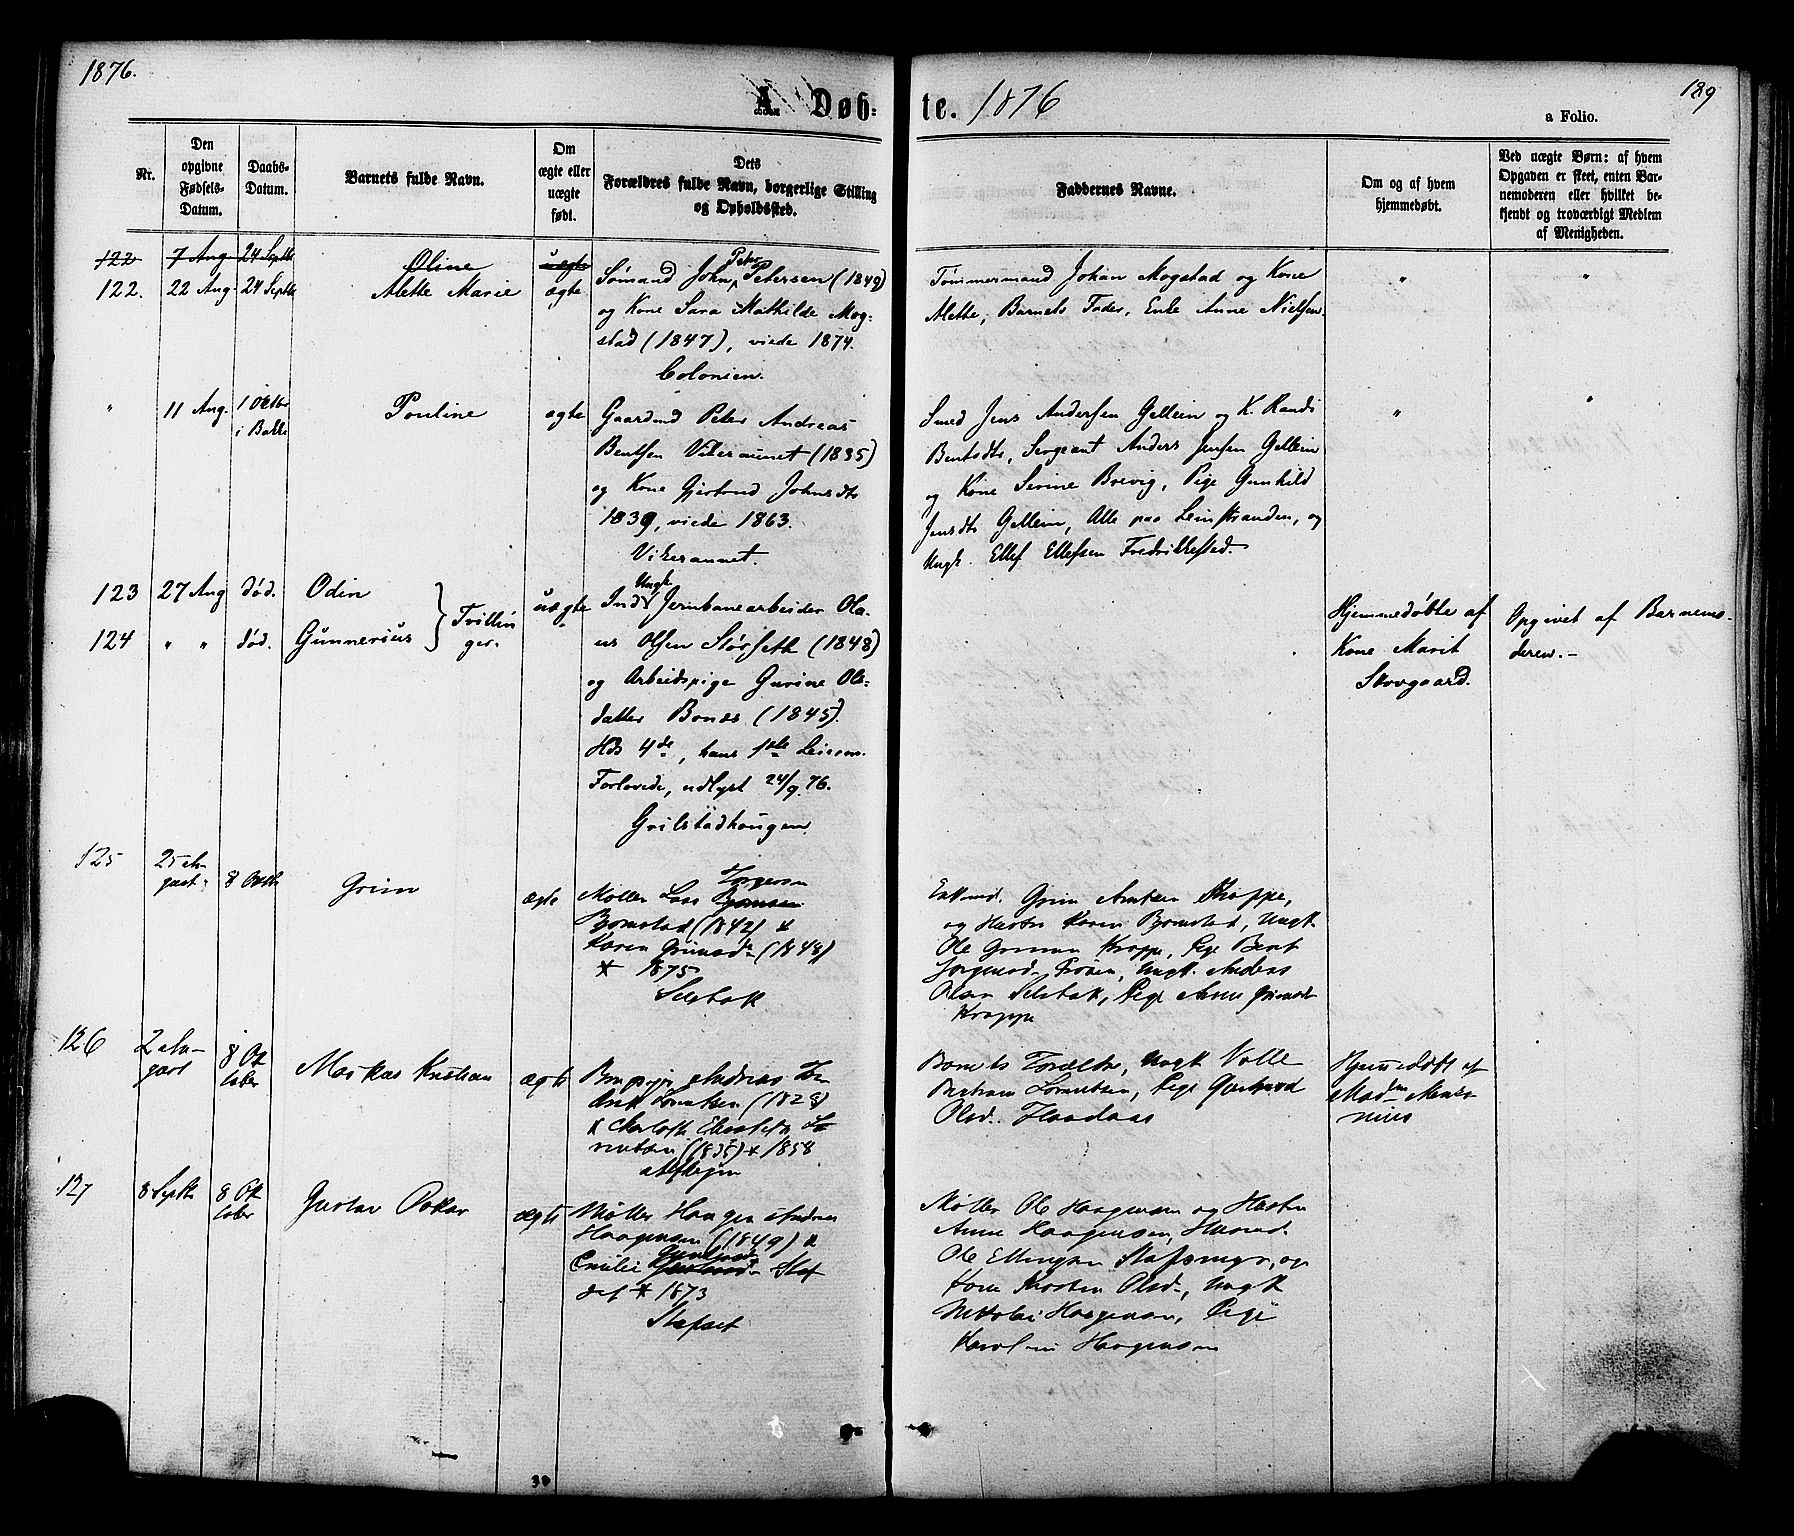 1876.
A. Døb-
te. 1876
189
a Folio.
Nr.
Den
opgivne
Fødsels-
Datum.
Daabs-
Datum.
Barnets fulde Navn.
Om
ægte eller
uægte
født.
Dets
Forældres fulde Navn, borgerlige Stilling
og Opholdssted.
Faddernes Navne.
Om og af hvem
hjemmedøbt.
Ved uægte Børn: af hvem
Opgaven er skeet, enten Bar-
nemoderen eller hvilket be-
kjendt og troværdigt Medlem
af Menigheden.
122 7 Aug. 24 Septbr Oline uægte
122. 22 Aug. 24 Septbr Alette Marie ægte
Sømand John Peter Petersen (1849)
og Kone Sara Mathilde Mog-
stad (1847), viede 1874.
Colonien.
Tømmermand Johan Mogstad og Kone
Alette, Barnets Fader, Enke Anne Nielsen
" "
" 11 Aug. 1 Octbr
i Bakke
Pouline ægte
Gaardmd Peter Andreas
Bentsen Vikeraunet (1835)
og Kone Gjertrud Johnsdtr
1839, viede 1863.
Vikeraunet.
Smed Jens Andersen Gellein og K. Randi
Bentsdtr, Sergeant Anders Jensen Gellein
og Kone Serine Brevig, Pige Gunhild
Jensdtr Gellein, Alle paa Leinstranden, og
Ungk. Ellef Ellefsen Fredrikkestad.
" "
123 27 Aug død. Odin
124 " " død. Gunnerius
Tvillin
ger.
uægte
Ungk.
Inds Jernbanearbeider Ola-
us Olsen Størseth (1848)
og Arbeidspige Gurine Ols-
datter Bonæs (1845).
Hds 4de, hans 1ste Leierm.
Forlovede, udlyst 24/9 76.
Grilstadhougen.
Hjemmedøbte af
Kone Marit
Skovgaard.
Opgivet af Barnemo-
deren.-
125 25 Au-
gust 8 Octb Grim ægte
Møller Lars Torgersen
Bjørnstad (1842) &
Karen Grimsd. (1848)
* 1875
Selsbak
Grim Arntsen Kroppe,
og Hustru Karen Bjørnstad, Ungk.
Ole Grimsen Kroppe, Pige Berit
Ungk. Anders
Olsen Selsbak, Pige Anne Grimsdt
Kroppe
126 2 Au-
gust 8 Ok
tober Markus Kristian ægte
Andreas
Lorentsen (1828)
& Charlotte Elisabeth Lo
rentsen (1835) * 1858
Barnets Forældre, Ungk
Lorentsen, Pige Gjertrud
Olsd. Flaadaas
Hjemmedøbt af
127 8 Septb 8 Ok
tober Gustav Oskar ægte
Møller Haagen Andreas
Haagensen (1849) &
Emilie
set * 1873
Stafset
Møller Ole Haagensen og Hustru
Anne Haagensen, Husmd.
Ole Ellingsen Stafsmyr, og
Kone Kirsten Olsd., Ungk
Nikolai Haagensen, Pige
Karoline Haagensen
30